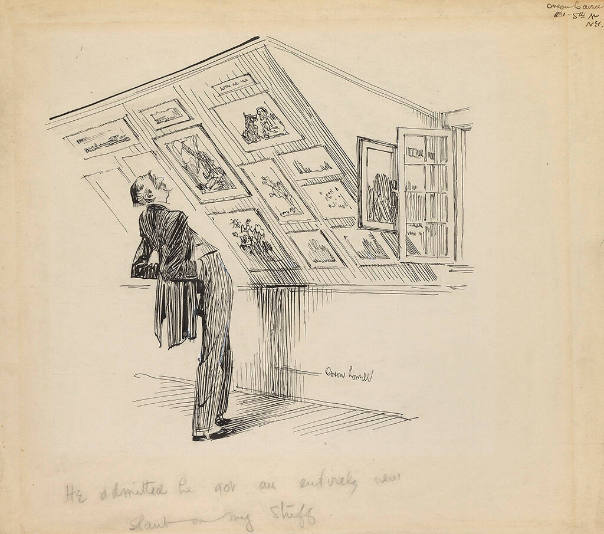 Orson Lowell
He admitted he got an entirely new
slant on my stuff.
Orson Lowell